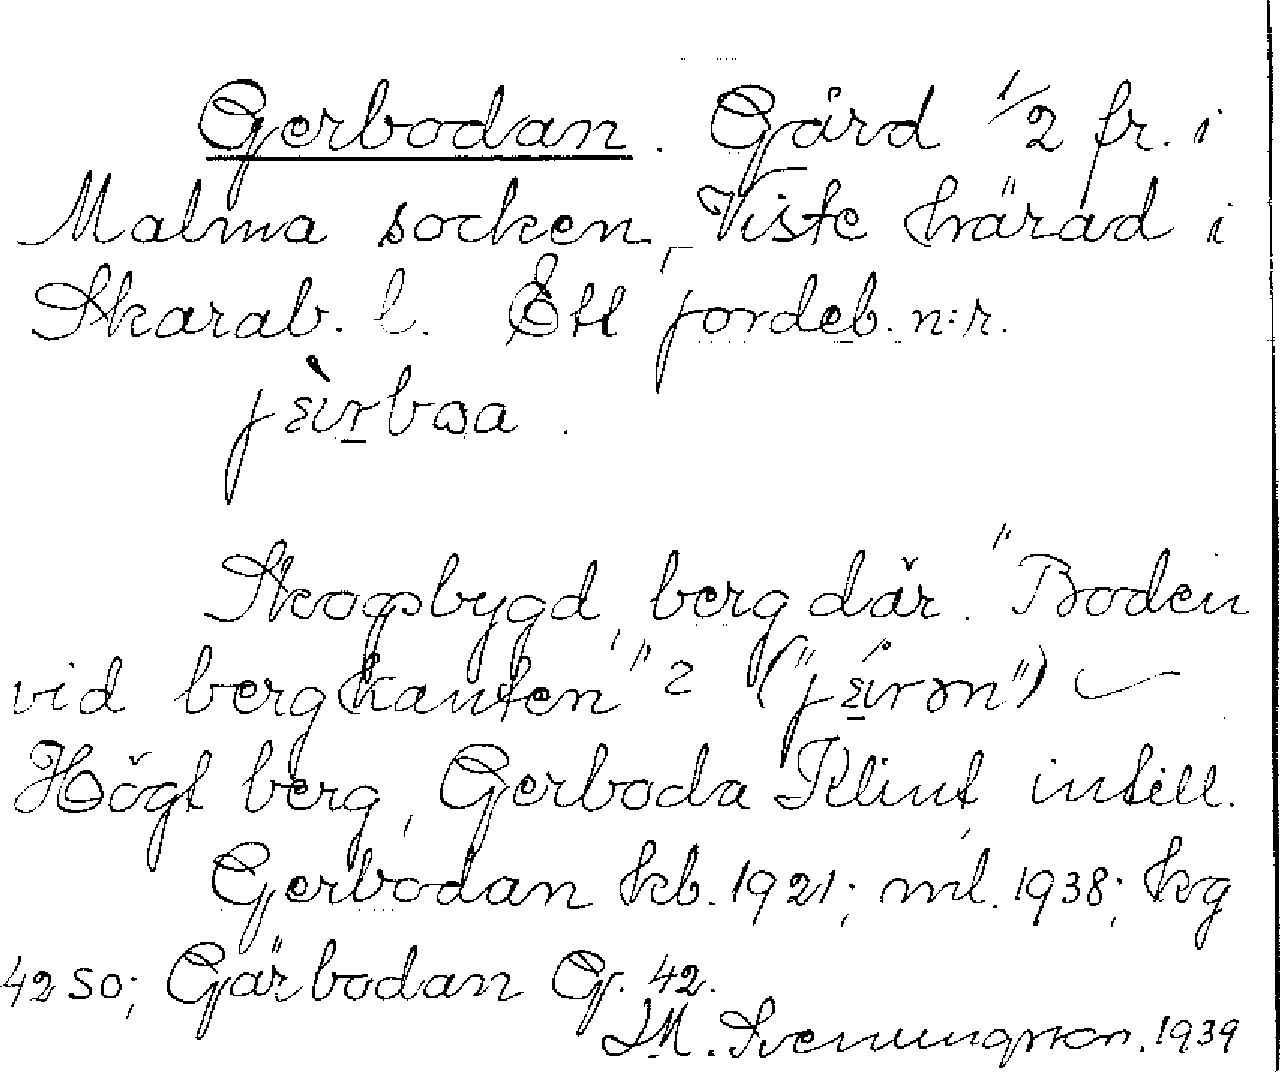 Gerbodan. Gård 1/2 fr. i
Malma socken, Viste härad i
Skarab. l. Ett jordeb. n:r.
jèirbɷa.
Skogsbygd, berg där. "Boden
vid bergkanten"? ("jéirən")
Högt berg, Gerboda Klint, intill.
Gerbodan kb. 1921; ml. 1938; kg
42 SO; Gärbodan G. 42.
Svenungsson. 1939